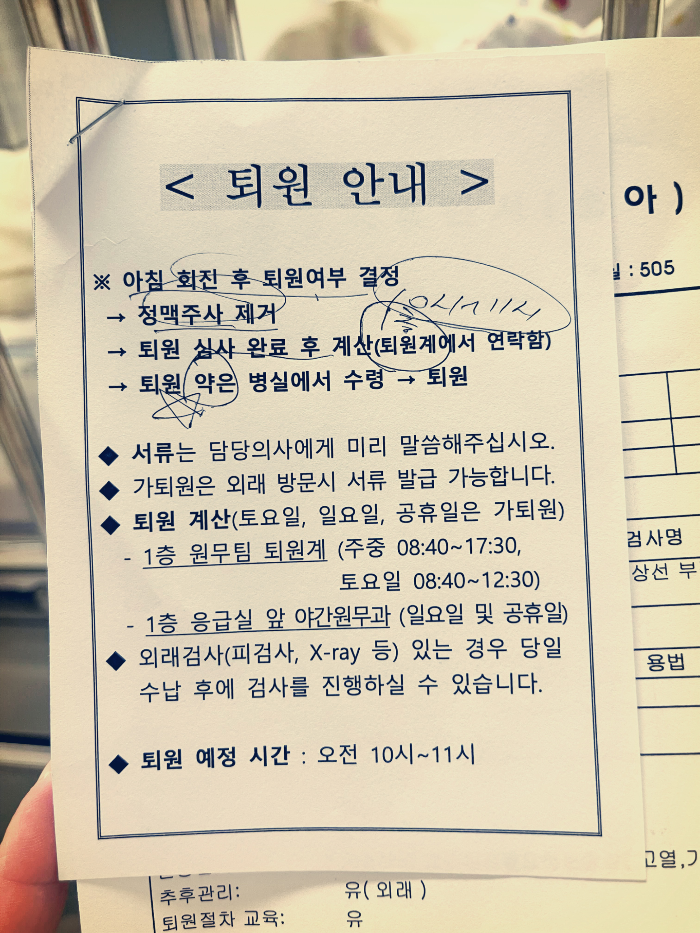 < 퇴원 안내 >
※ 아침 회진 후 퇴원여부 결정
→ 정맥주사 제거
10시~11시
→ 퇴원 심사 완료 후 계산(퇴원계에서 연락함)
→ 퇴원 약은 병실에서 수령 → 퇴원
◆ 서류는 담당의사에게 미리 말씀해주십시오.
◆ 가퇴원은 외래 방문시 서류 발급 가능합니다.
◆ 퇴원 계산(토요일, 일요일, 공휴일은 가퇴원)
- 1층 원무팀 퇴원계 (주중 08:40~17:30,
토요일 08:40~12:30)
- 1층 응급실 앞 야간원무과 (일요일 및 공휴일)
◆ 외래검사(피검사, X-ray 등) 있는 경우 당일
수납 후에 검사를 진행하실 수 있습니다.
◆ 퇴원 예정 시간 : 오전 10시~11시
아 )
: 505
검사명
상선 부
용법
고열,
추후관리: 유( 외래 )
퇴원절차 교육: 유